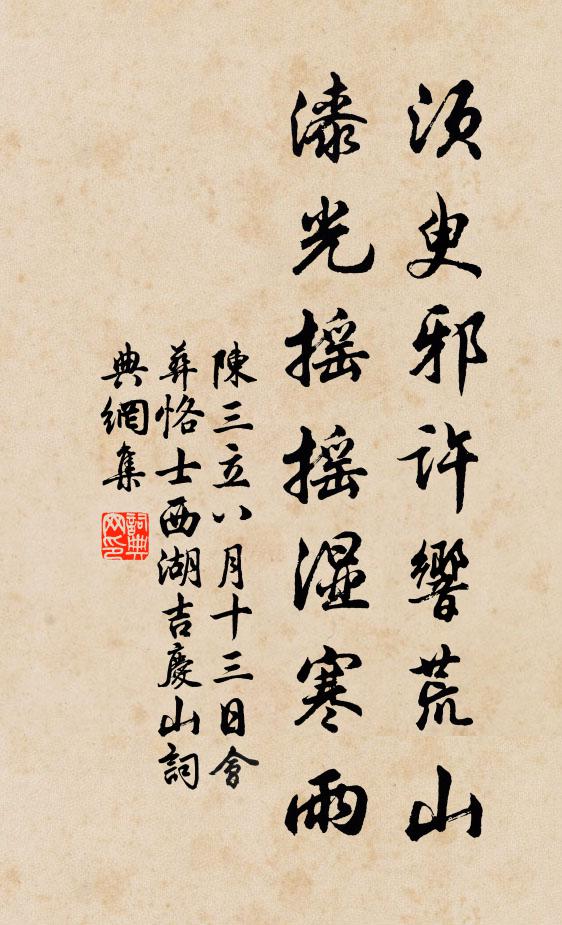 須臾邪許響荒山
漆光搖搖濕寒雨
陳三立八月十三日會
葬恪士西湖吉慶山詞
典網集
詞典網印